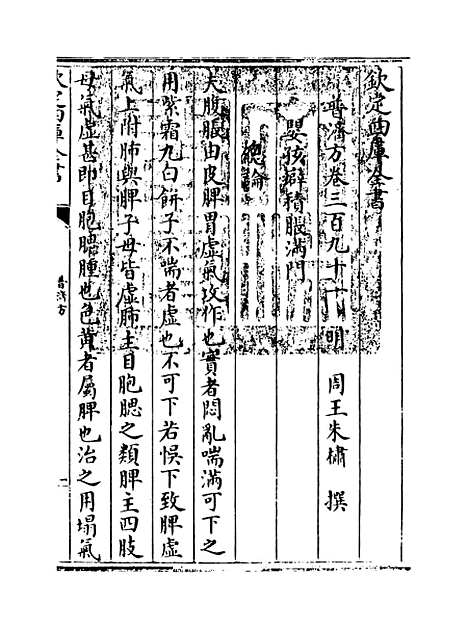 欽定四庫全書
普濟方卷三百九十一　明　周王朱橚　撰
嬰孩癖積脹滿門
總論
夫腹脹由皮脾胃虛氣攻作也實者悶亂喘滿可下之
用紫霜丸白餅子不喘者虛也不可下若悞下致脾虛
氣上附肺與脾子母皆虛肺主目胞腮之類脾主四肢
母氣虛甚即目胞腮腫也色黄者屬脾也治之用塌氣
欽定四庫全書
普濟方
一